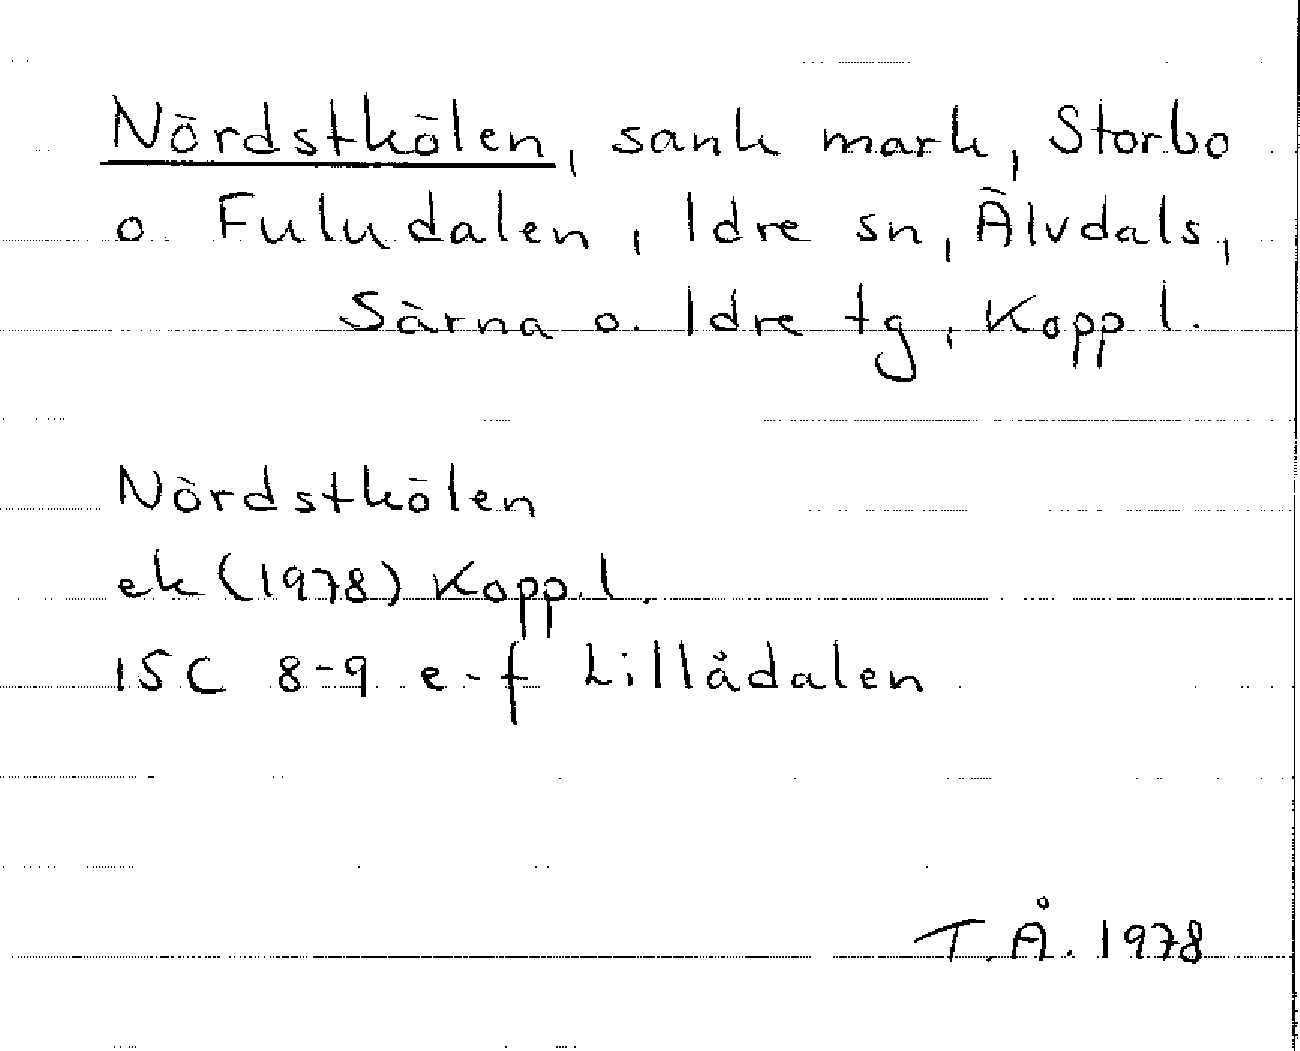 Nördstkölen, sank mark, Storbo
o. Fuludalen, Idre sn, Älvdals,
Särna o. Idre tg, Kopp l.
Nördstkölen
ek (1978) Kopp. l.
15C 8-9 e-f Lillådalen
T.Å. 1978